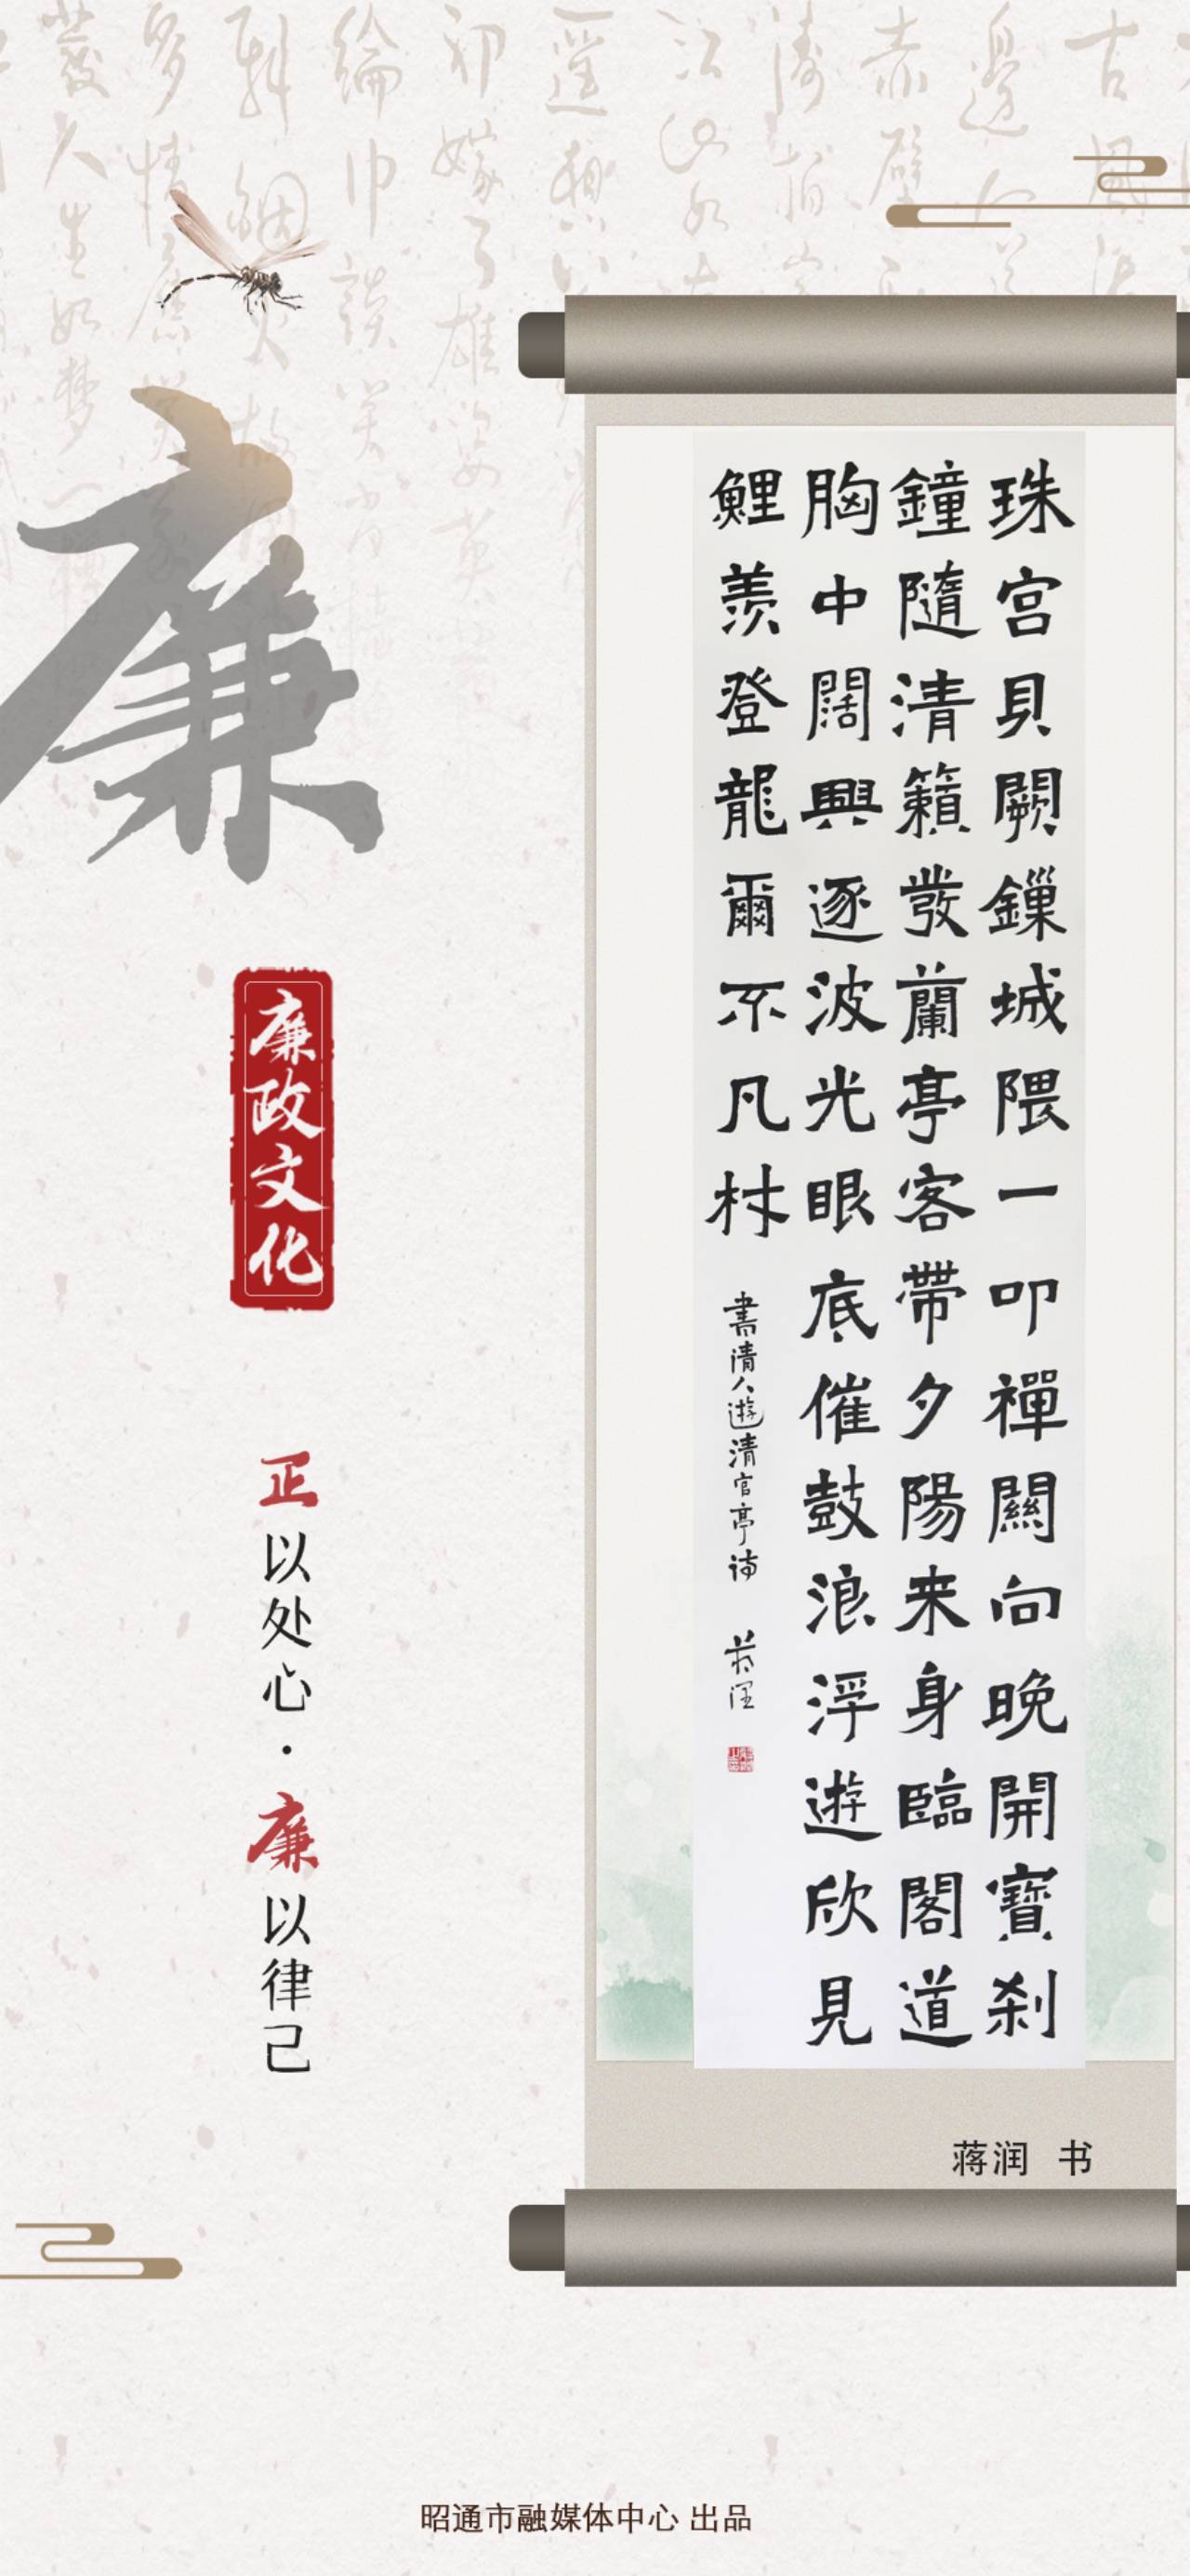 廉
廉政文化
正以处心·廉以律己
珠宫貝闕鏁城隈一叩禪關向晚開寶刹
鐘隨清籟發蘭亭客帶夕陽来身臨閣道
胸中闊興逐波光眼底催鼓浪浮遊欣見
鯉羨登龍爾不凡材
書清人遊清官亭詩 蒋润
蒋润 书
昭通市融媒体中心 出品